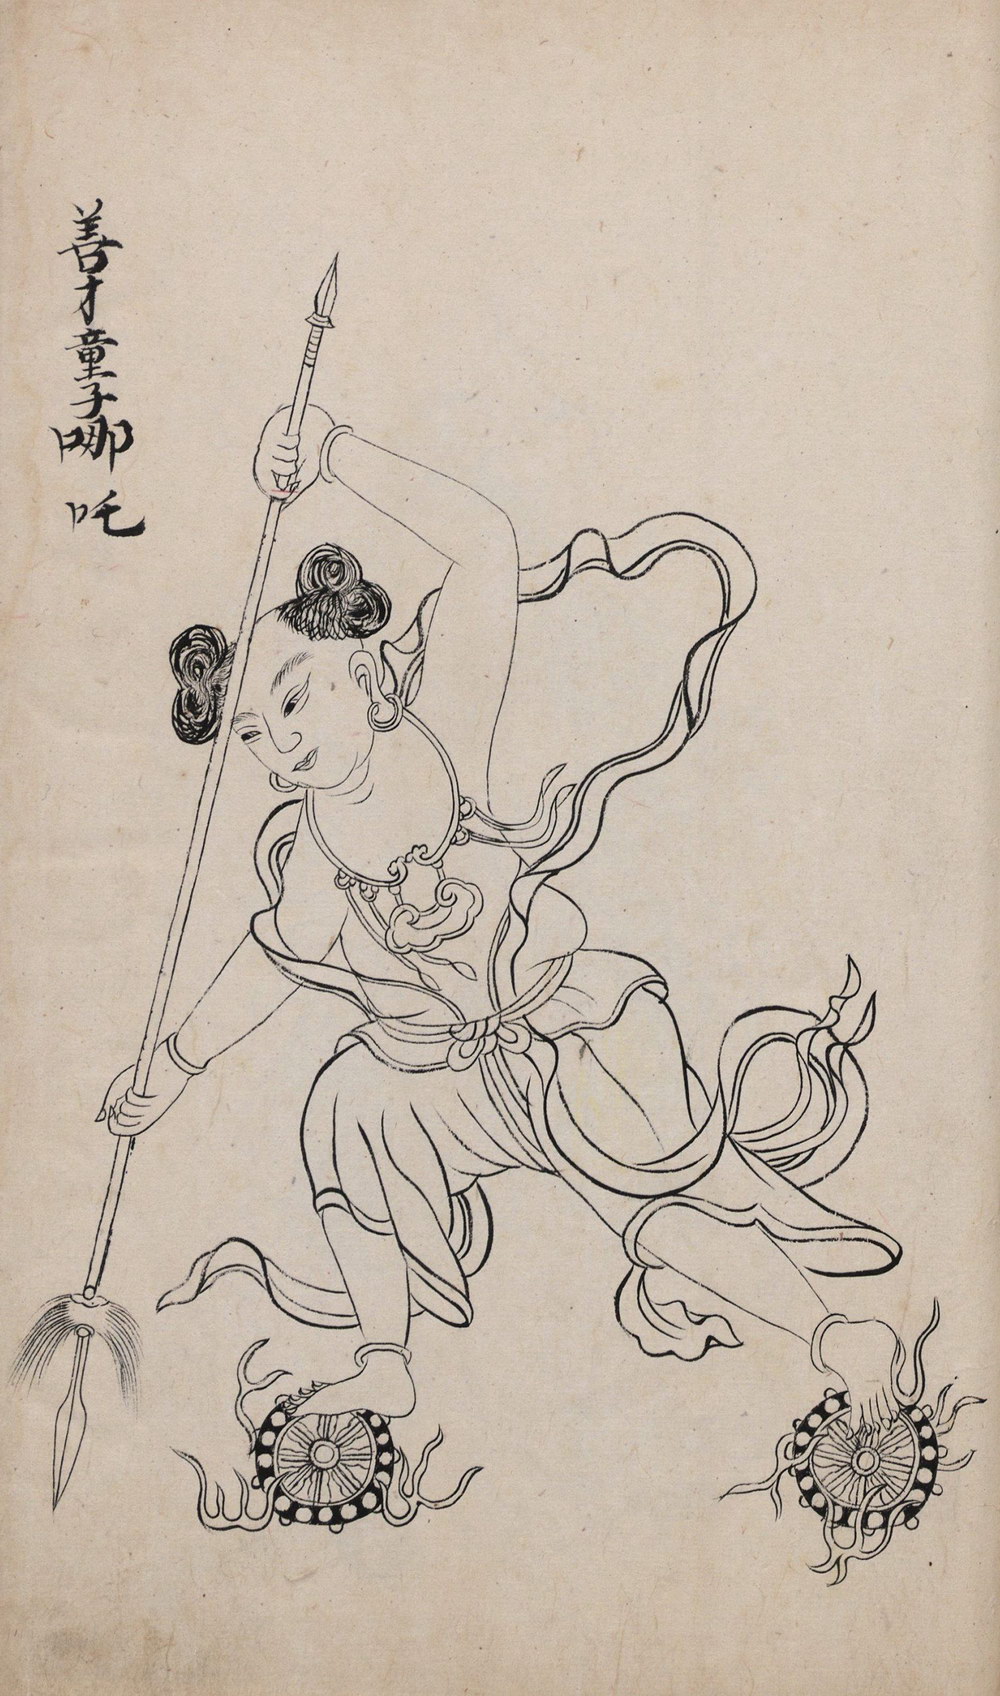 善才童子哪吒